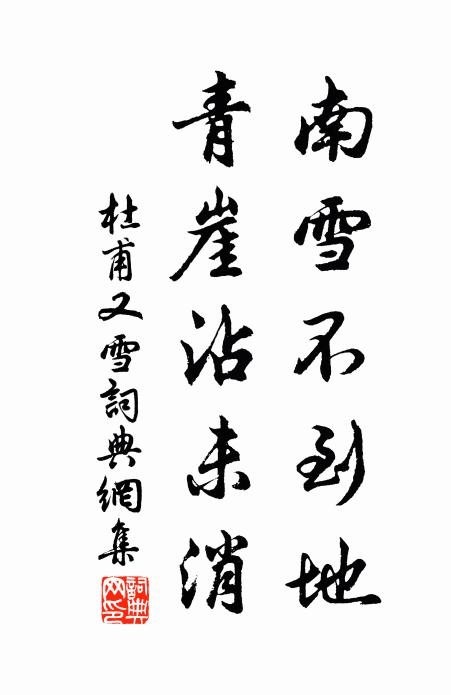 南雪不到地
青崖沾未消
杜甫又雪詞典網集
詞典网印